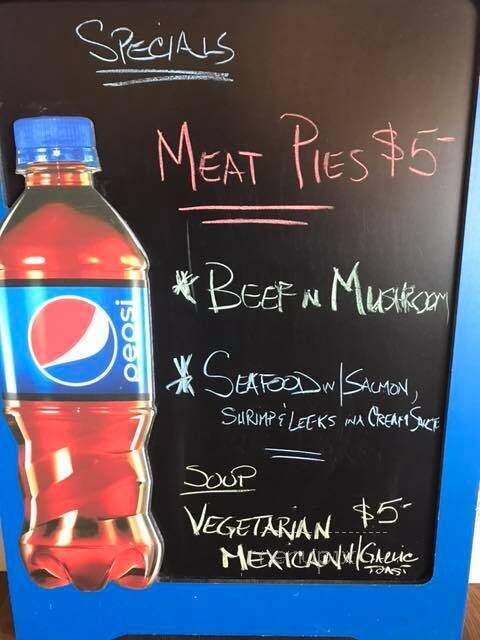 SPECIALS
MEAT PIES $5-
* BEEF N MUSHROOM
* SEAFOOD W/ SALMON,
SHRIMP & LEEKS IN A CREAM SAUCE
SOUP
VEGETARIAN $5-
MEXICAN W/ GARLIC
TOAST
pepsi